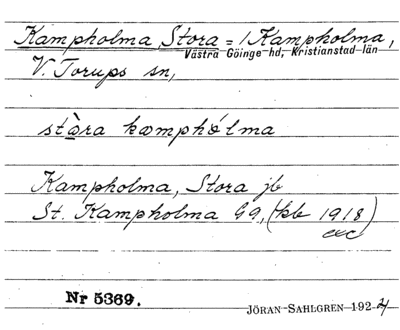 Kampholma, Stora = / Kampholma,
Västra Göinge hd, Kristianstad län
V. Torups sn,
stòra kamphólma
Kampholma, Stora jb
St. Kampholma G9, (kb 1918)
exc
Nr 5369.
JÖRAN SAHLGREN 1924